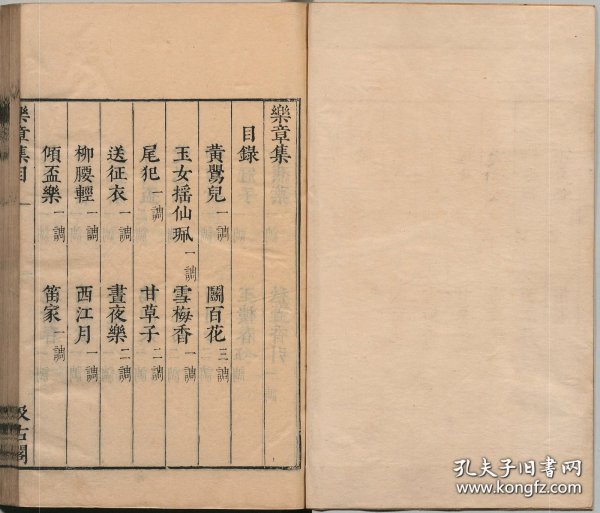 樂章集
目錄
黃鸎兒一調 鬭百花三調
玉女揺仙珮一調 雪梅香一調
尾犯一調 甘草子二調
送征衣一調 晝夜樂二調
柳腰輕一調 西江月一調
傾盃樂一調 笛家一調
樂章集目 一 汲古閣
孔夫子旧书网
www.kongfz.com